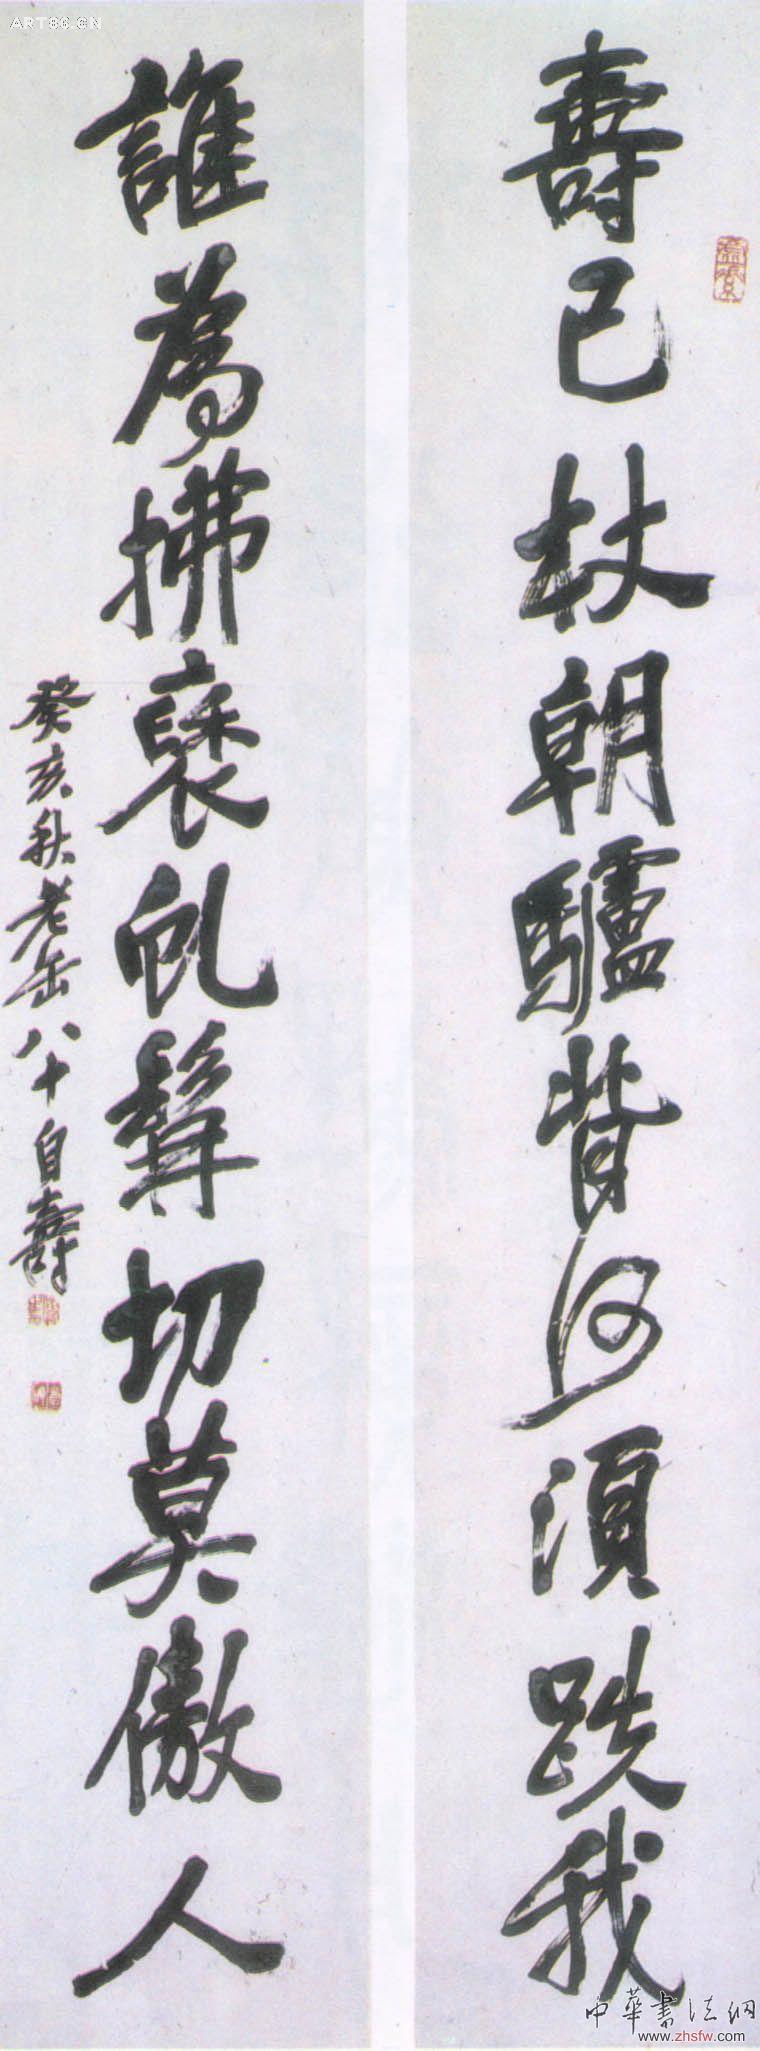 ART86.CN
壽已杖朝驢背何須跌我
誰為拂褎虬髯切莫傲人
癸亥秋老缶八十自壽
中華書法網
www.zhsfw.com